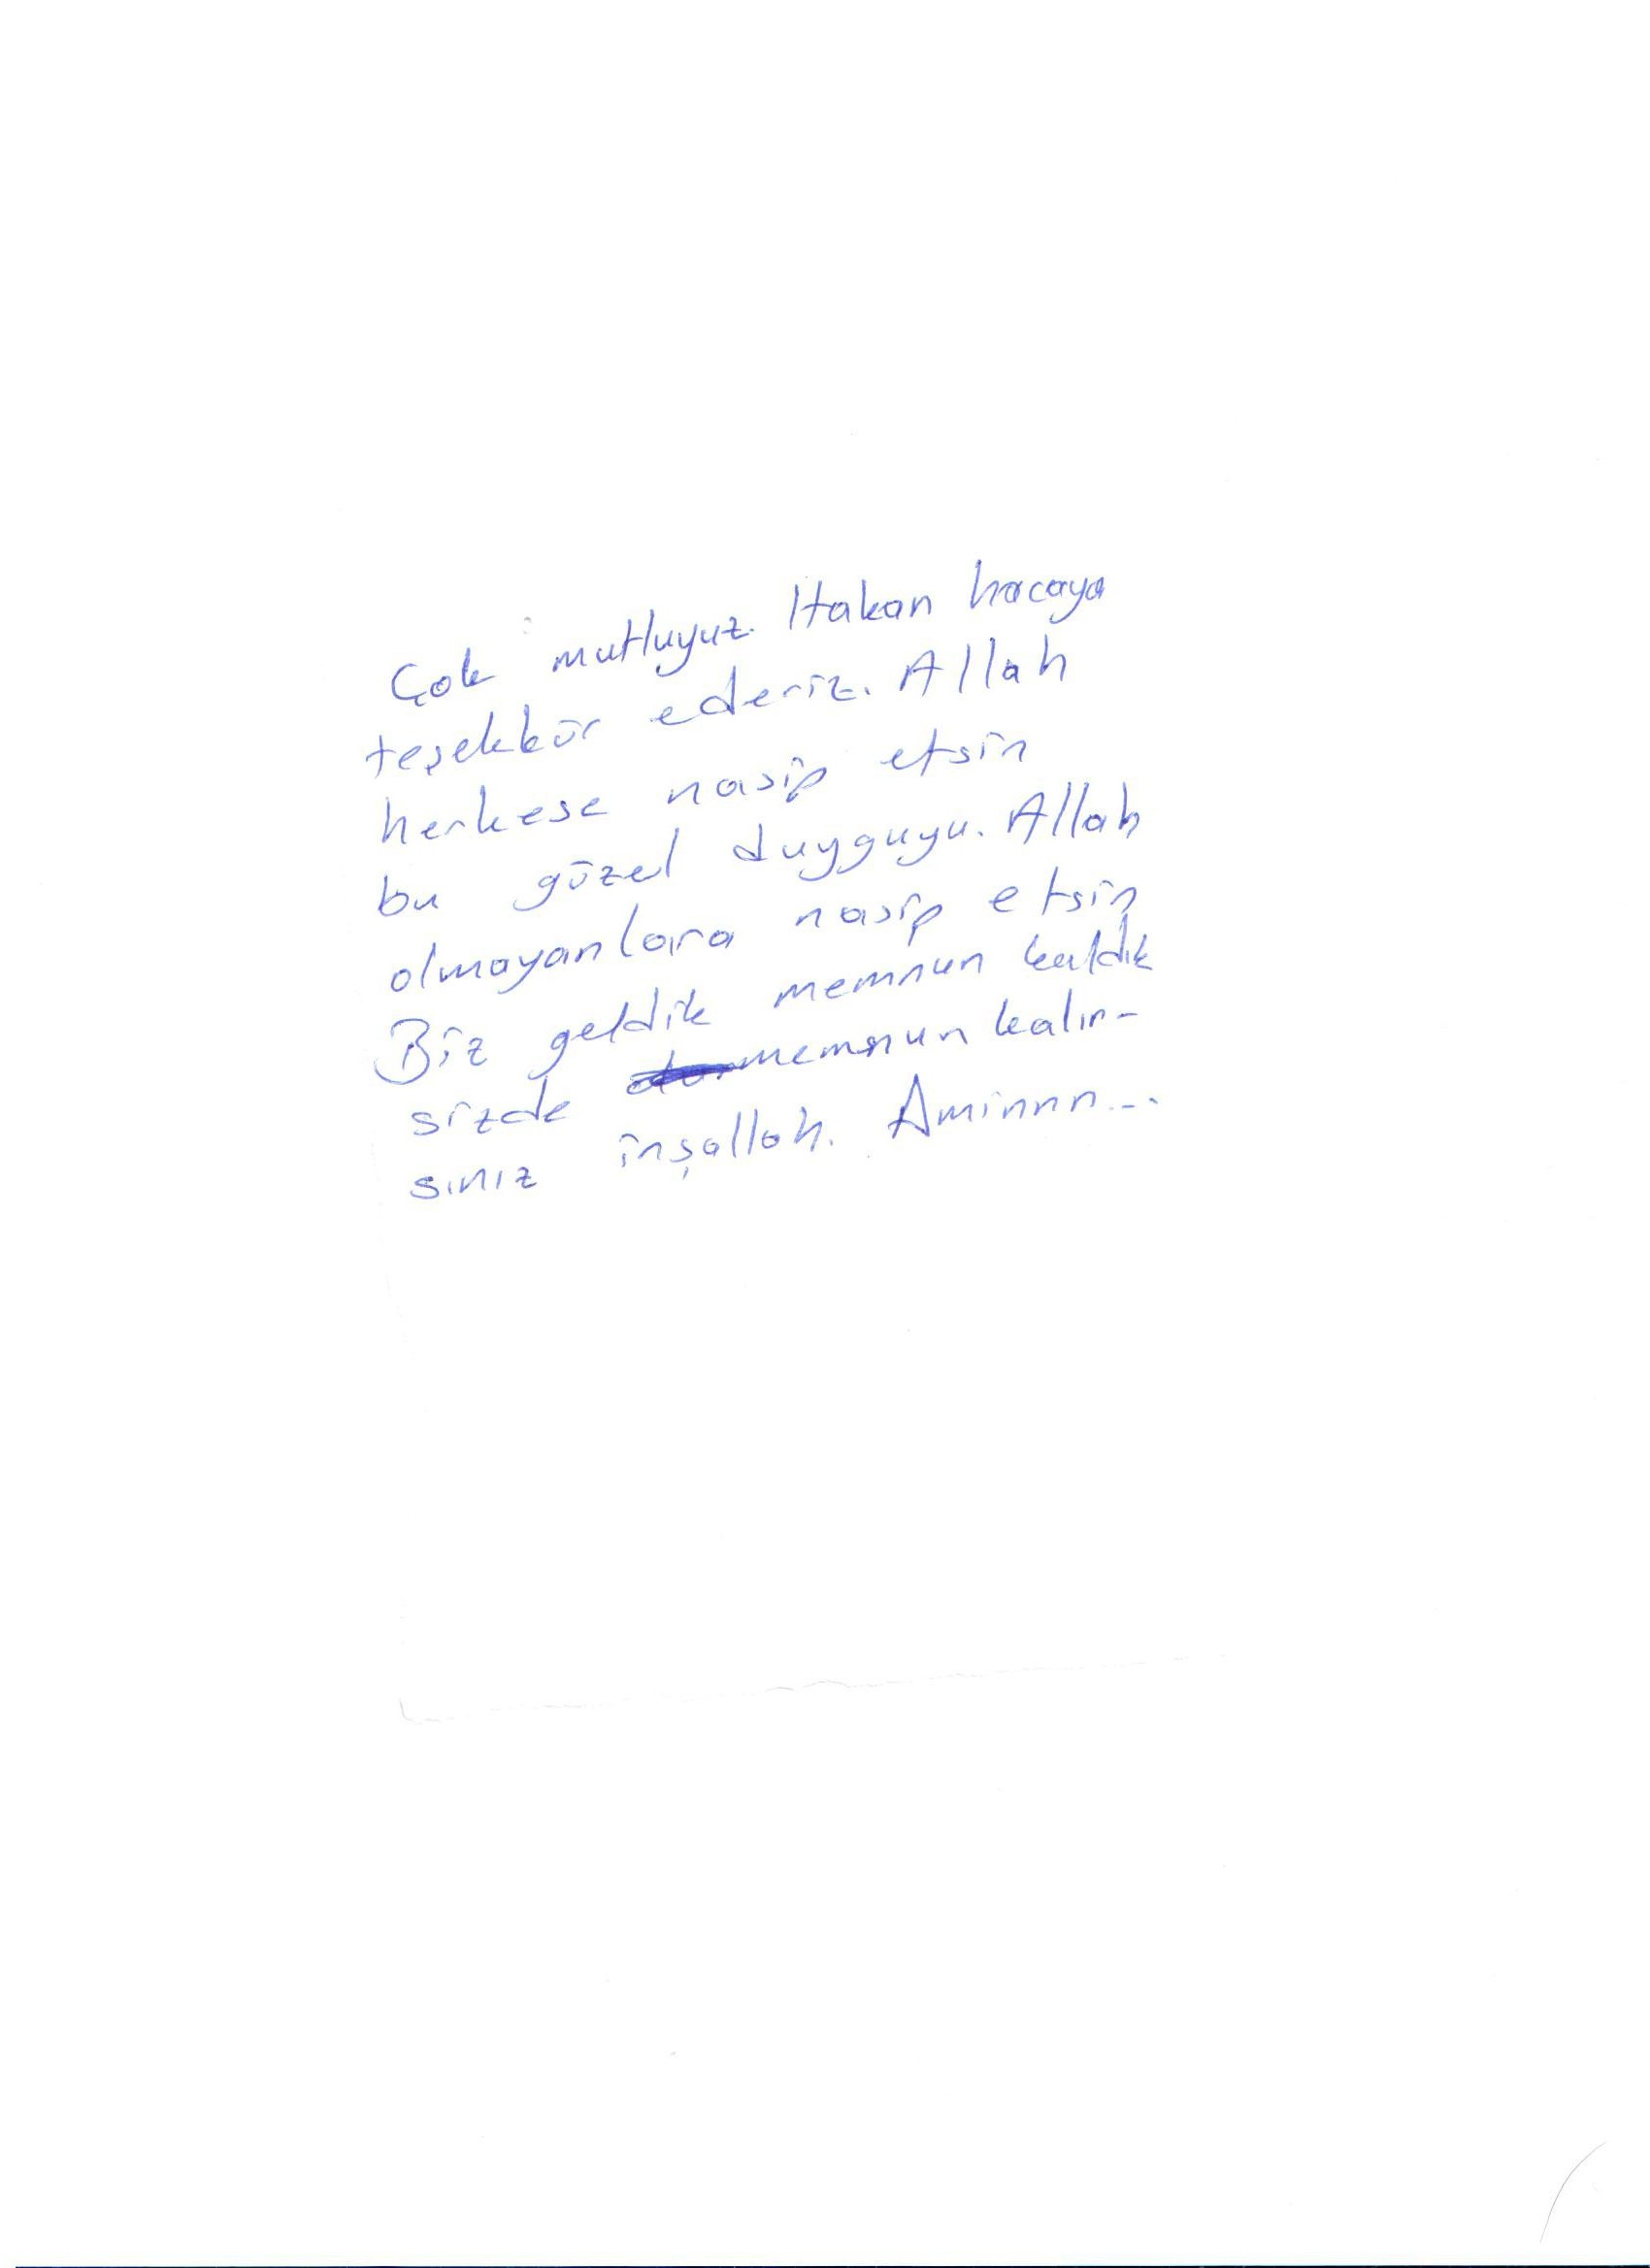 Çok mutluyuz. Hakan hocaya
teşekkür ederiz. Allah
herkese nasip etsin
bu güzel duyguyu. Allah
olmayanlara nasip etsin
Biz geldik memnun kaldık
sizde memnun kalır-
sınız inşallah. Aminnn...